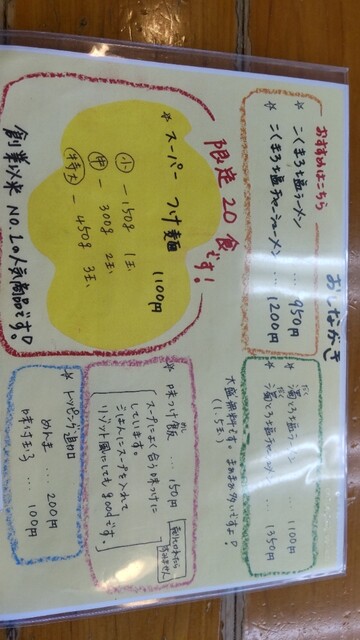 おしながき
おすすめはこちら
* こくまろ塩ラーメン … 950円
* こくまろ塩チャーシューメン … 1200円
限定20食です!
* スーパーつけ麺 1100円
小 - 150g 1玉
中 - 300g 2玉
特大 - 450g 3玉
創業以来 No.1の人気商品です
* 濃とろ塩ラーメン … 1100円
濃とろ塩チャーシュー … 1350円
大盛無料です。まあまあ多いですよ
(1.5玉)
* 味つけ飯 … 150円
スープによく合う味つけに
しています。
ごはんにスープを入れて
リゾット風にしてもgoodです
* トッピング追加
めんま … 200円
味付玉子 … 100円